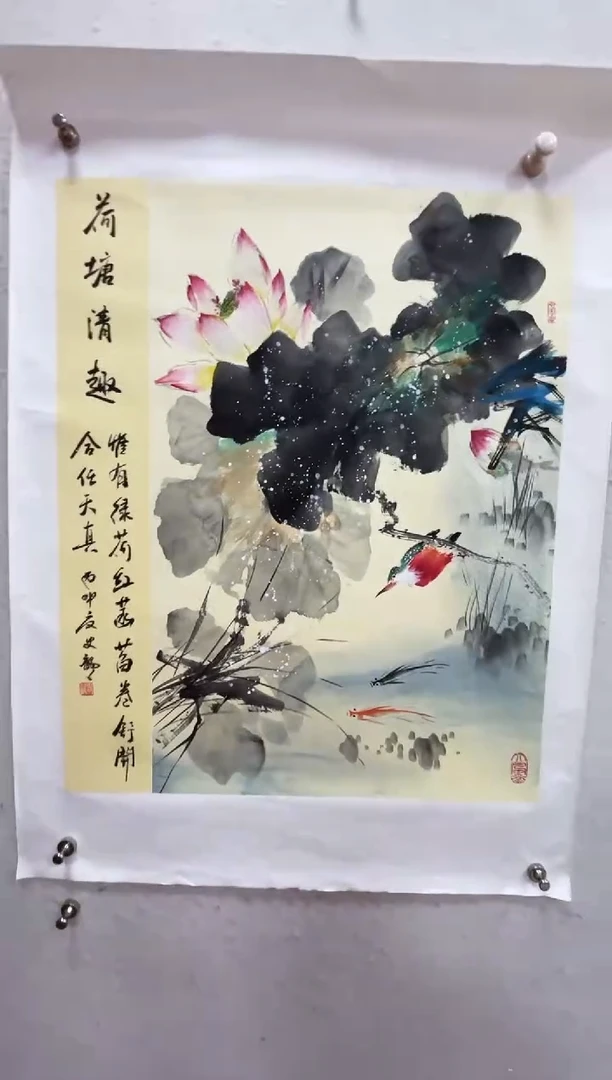 荷塘清趣
惟有绿荷红菡萏卷舒開
合任天真